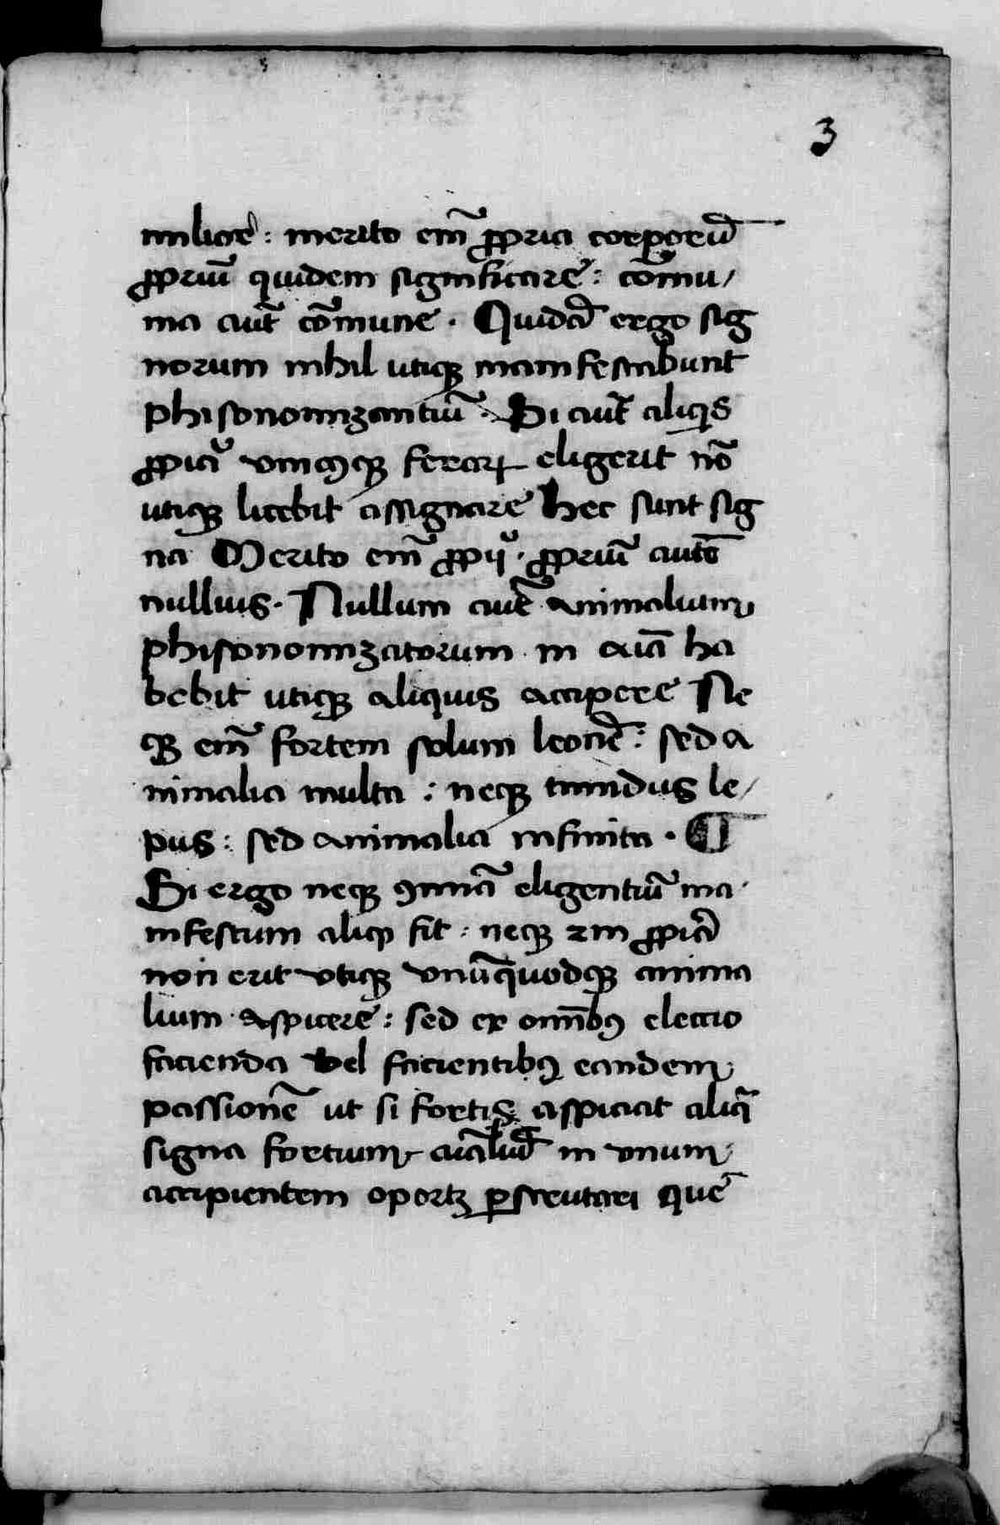 3
milicie᷒: merito em̃ ꝓpria corporũ
ꝓpriũ quidem significare: cõmu/
nia aut̃ cõmune. Quidã ergo sig
norum nihil utiqꝫ manifestabunt
phisonomizantiũ. Si aut̃ aliqis
ꝓpia unicꝰqꝫ feraꝝ eligerit nõ
utiqꝫ licebit assignare hec sunt sig
na Merito em̃ ꝓpij. ꝓpriũ autẽ
nullius. Nullum aut̃ animalium
phisonomizatorum in aia᷒ ha
bebit utiqꝫ aliquis accipere Ne
qꝫ em̃ fortem solum leonẽ: sed a
nimalia multa: neqꝫ timidus le/
pus: sed animalia infinita. ¶
Si ergo neqꝫ ꝯmuia᷒ eligentiũ ma
nifestum aliqͥ fit: neqꝫ ꝓpiã
non erit utiqꝫ unũquodqꝫ anima
lium aspicere: sed ex omĩbꝰ electio
facienda vel facientibꝰ eandem
passionẽ ut si fortis aspiciat aliq̃
signa fortium aĩaliũ in unum
accipientem oportꝫ ꝑscrutari que᷒